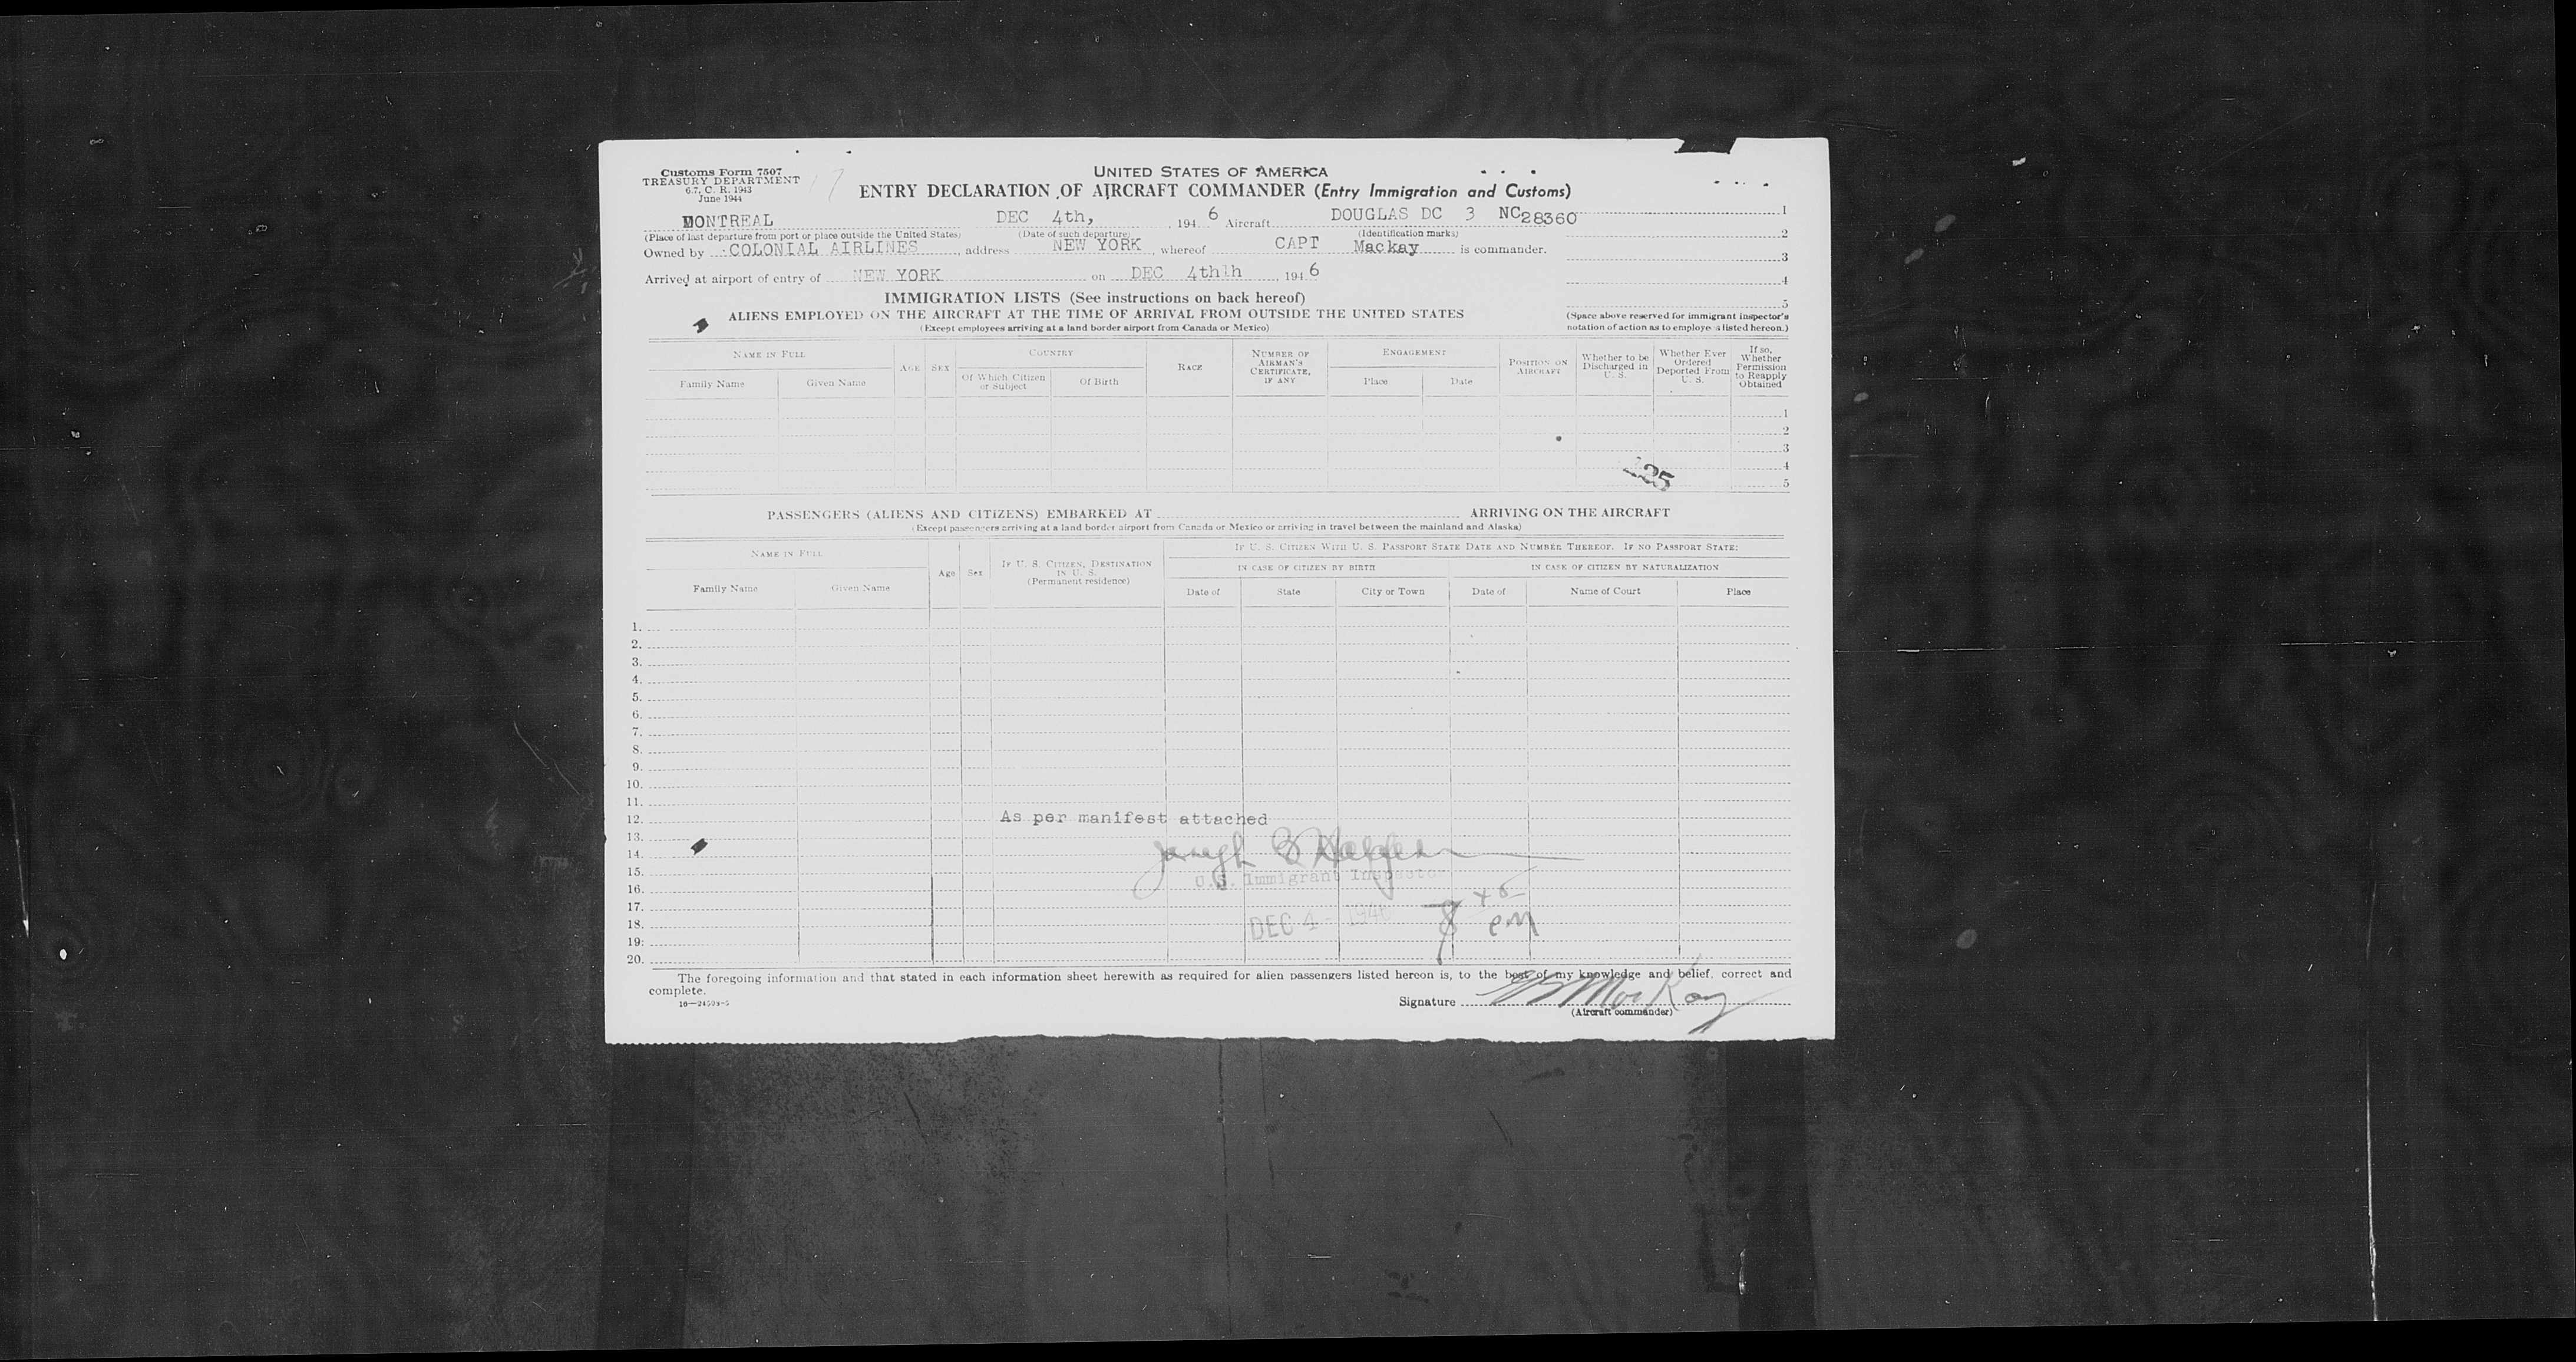 Customs Form 7507
TREASURY DEPARTMENT
6.7, C. R. 1943
June 1944
17
UNITED STATES OF AMERICA
ENTRY DECLARATION OF AIRCRAFT COMMANDER (Entry Immigration and Customs)
MONTREAL DEC 4th, , 194 6 Aircraft DOUGLAS DC 3 NC28360 1
(Place of last departure from port or place outside the United States) (Date of such departure) (Identification marks) 2
Owned by COLONIAL AIRLINES , address NEW YORK , whereof CAPT Mackay is commander.
3
Arrived at airport of entry of NEW YORK on DEC 4th , 194 6
4
IMMIGRATION LISTS (See instructions on back hereof)
5
ALIENS EMPLOYED ON THE AIRCRAFT AT THE TIME OF ARRIVAL FROM OUTSIDE THE UNITED STATES
(Except employees arriving at a land border airport from Canada or Mexico)
(Space above reserved for immigrant inspector's
notation of action as to employees listed hereon.)
NAME IN FULL
Family Name Given Name
AGE SEX
COUNTRY
Of Which Citizen
or Subject
Of Birth
RACE
NUMBER OF
AIRMAN'S
CERTIFICATE,
IF ANY
ENGAGEMENT
Place Date
POSITION ON
AIRCRAFT
Whether to be
Discharged in
U. S.
Whether Ever
Ordered
Deported From
U. S.
If so,
Whether
Permission
to Reapply
Obtained
1
2
3
4
5
225
PASSENGERS (ALIENS AND CITIZENS) EMBARKED AT ARRIVING ON THE AIRCRAFT
(Except passengers arriving at a land border airport from Canada or Mexico or arriving in travel between the mainland and Alaska)
NAME IN FULL
Family Name Given Name
Age Sex
IF U. S. CITIZEN, DESTINATION
IN U. S.
(Permanent residence)
IF U. S. CITIZEN WITH U. S. PASSPORT STATE DATE AND NUMBER THEREOF. IF NO PASSPORT STATE:
IN CASE OF CITIZEN BY BIRTH IN CASE OF CITIZEN BY NATURALIZATION
Date of State City or Town Date of Name of Court Place
1.
2.
3.
4.
5.
6.
7.
8.
9.
10.
11.
12. As per manifest attached
13.
14. Joseph
15.
U.S. Immigrant Inspector
16.
17.
18. DEC 4 - 1946 8 45 PM
19.
20.
The foregoing information and that stated in each information sheet herewith as required for alien passengers listed hereon is, to the best of my knowledge and belief, correct and
complete.
Signature MacKay
(Aircraft commander)